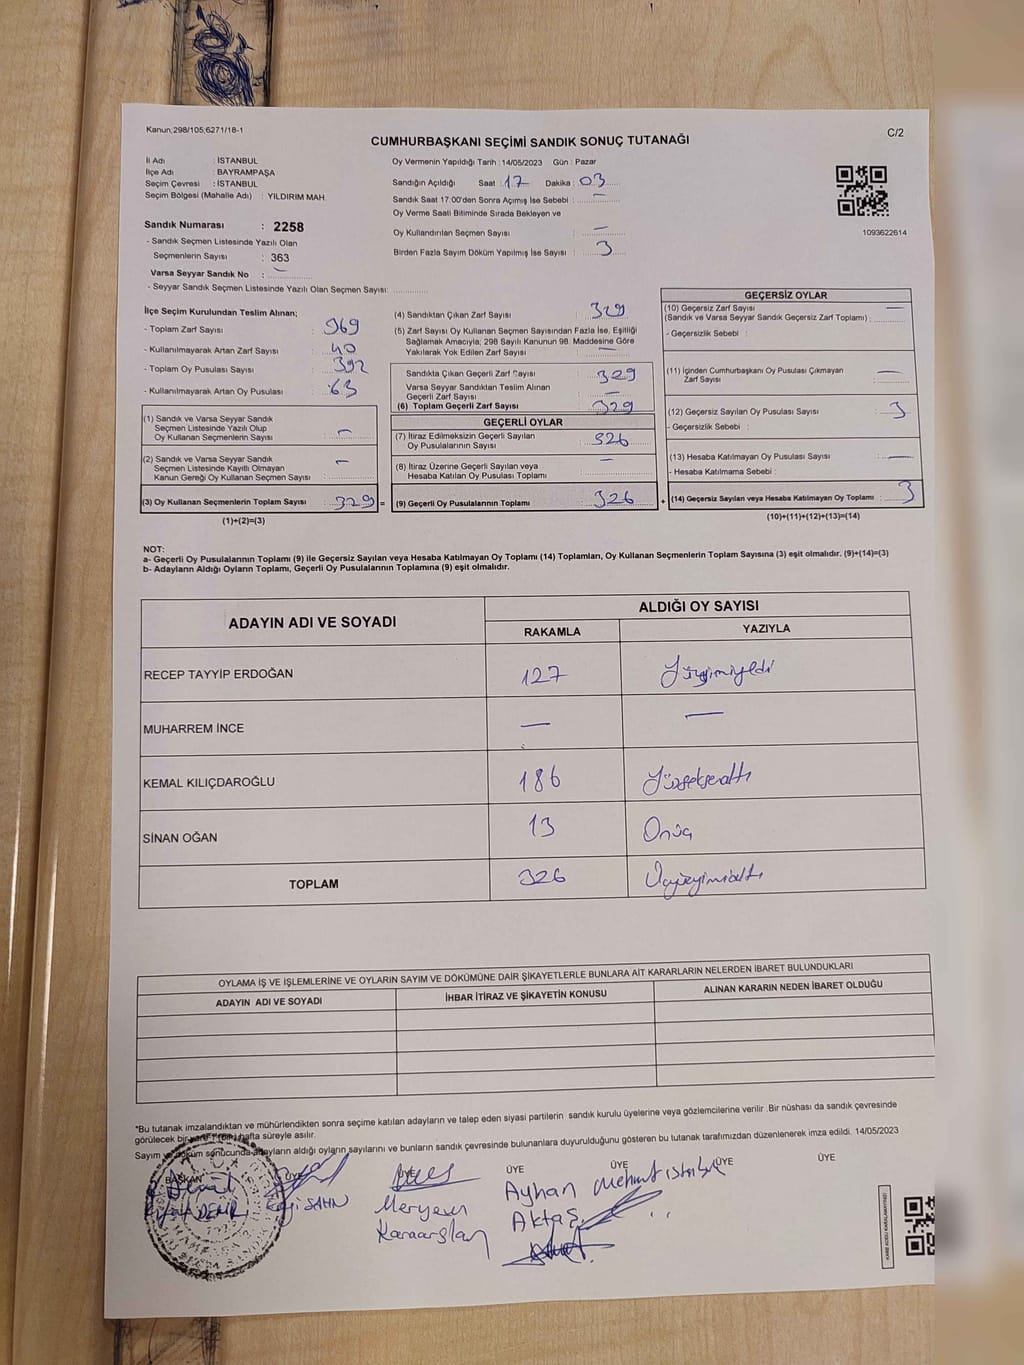 Kanun;298/105;6271/18-1
C/2
CUMHURBAŞKANI SEÇİMİ SANDIK SONUÇ TUTANAĞI
İl Adı : İSTANBUL
İlçe Adı : BAYRAMPAŞA
Seçim Çevresi : İSTANBUL
Seçim Bölgesi (Mahalle Adı) : YILDIRIM MAH
Sandık Numarası : 2258
- Sandık Seçmen Listesinde Yazılı Olan
Seçmenlerin Sayısı : 363
Varsa Seyyar Sandık No : —
- Seyyar Sandık Seçmen Listesinde Yazılı Olan Seçmen Sayısı:
Oy Vermenin Yapıldığı Tarih : 14/05/2023 Gün : Pazar
Sandığın Açıldığı Saat : 17 Dakika : 03
Sandık Saat 17:00'den Sonra Açımış İse Sebebi : —
Oy Verme Saati Bitiminde Sırada Bekleyen ve
Oy Kullandırılan Seçmen Sayısı : —
Birden Fazla Sayım Döküm Yapılmış İse Sayısı : 3
1093622614
İlçe Seçim Kurulundan Teslim Alınan;
- Toplam Zarf Sayısı : 369
- Kullanılmayarak Artan Zarf Sayısı : 40
- Toplam Oy Pusulası Sayısı : 392
- Kullanılmayarak Artan Oy Pusulası : 63
(1) Sandık ve Varsa Seyyar Sandık
Seçmen Listesinde Yazılı Olup
Oy Kullanan Seçmenlerin Sayısı : —
(2) Sandık ve Varsa Seyyar Sandık
Seçmen Listesinde Kayıtlı Olmayan
Kanun Gereği Oy Kullanan Seçmen Sayısı : —
(3) Oy Kullanan Seçmenlerin Toplam Sayısı : 329 =
(1)+(2)=(3)
(4) Sandıktan Çıkan Zarf Sayısı : 329
(5) Zarf Sayısı Oy Kullanan Seçmen Sayısından Fazla İse, Eşitliği
Sağlamak Amacıyla, 298 Sayılı Kanunun 98. Maddesine Göre
Yakılarak Yok Edilen Zarf Sayısı : —
Sandıkta Çıkan Geçerli Zarf Sayısı : 329
Varsa Seyyar Sandıktan Teslim Alınan
Geçerli Zarf Sayısı : —
(6) Toplam Geçerli Zarf Sayısı : 329
GEÇERLİ OYLAR
(7) İtiraz Edilmeksizin Geçerli Sayılan
Oy Pusulalarının Sayısı : 326
(8) İtiraz Üzerine Geçerli Sayılan veya
Hesaba Katılan Oy Pusulası Toplamı : —
(9) Geçerli Oy Pusulalarının Toplamı : 326 +
GEÇERSİZ OYLAR
(10) Geçersiz Zarf Sayısı —
(Sandık ve Varsa Seyyar Sandık Geçersiz Zarf Toplamı) :
- Geçersizlik Sebebi :
(11) İçinden Cumhurbaşkanı Oy Pusulası Çıkmayan
Zarf Sayısı : —
(12) Geçersiz Sayılan Oy Pusulası Sayısı : 3
- Geçersizlik Sebebi :
(13) Hesaba Katılmayan Oy Pusulası Sayısı : —
- Hesaba Katılmama Sebebi :
(14) Geçersiz Sayılan veya Hesaba Katılmayan Oy Toplamı : 3
(10)+(11)+(12)+(13)=(14)
NOT:
a- Geçerli Oy Pusulalarının Toplamı (9) ile Geçersiz Sayılan veya Hesaba Katılmayan Oy Toplamı (14) Toplamları, Oy Kullanan Seçmenlerin Toplam Sayısına (3) eşit olmalıdır. (9)+(14)=(3)
b- Adayların Aldığı Oyların Toplamı, Geçerli Oy Pusulalarının Toplamına (9) eşit olmalıdır.
ADAYIN ADI VE SOYADI
ALDIĞI OY SAYISI
RAKAMLA YAZIYLA
RECEP TAYYİP ERDOĞAN 127 Yüzyirmiyedi
MUHARREM İNCE — —
KEMAL KILIÇDAROĞLU 186 Yüzseksenaltı
SİNAN OĞAN 13 Onüç
TOPLAM 326 Üçyüzyirmialtı
OYLAMA İŞ VE İŞLEMLERİNE VE OYLARIN SAYIM VE DÖKÜMÜNE DAİR ŞİKAYETLERLE BUNLARA AİT KARARLARIN NELERDEN İBARET BULUNDUKLARI
ADAYIN ADI VE SOYADI İHBAR İTİRAZ VE ŞİKAYETİN KONUSU ALINAN KARARIN NEDEN İBARET OLDUĞU
*Bu tutanak imzalandıktan ve mühürlendikten sonra seçime katılan adayların ve talep eden siyasi partilerin sandık kurulu üyelerine veya gözlemcilerine verilir .Bir nüshası da sandık çevresinde
görülecek bir yere 1 (bir) hafta süreyle asılır.
Sayım ve döküm sonucunda adayların aldığı oyların sayılarını ve bunların sandık çevresinde bulunanlara duyurulduğunu gösteren bu tutanak tarafımızdan düzenlenerek imza edildi. 14/05/2023
BAŞKAN ÜYE ÜYE ÜYE ÜYE ÜYE ÜYE
DEMİR
SAHN
Meryem
Karaarslan
Ayhan
Aktaş
Mehmet
KARE KODU KARALAMAYINIZ!